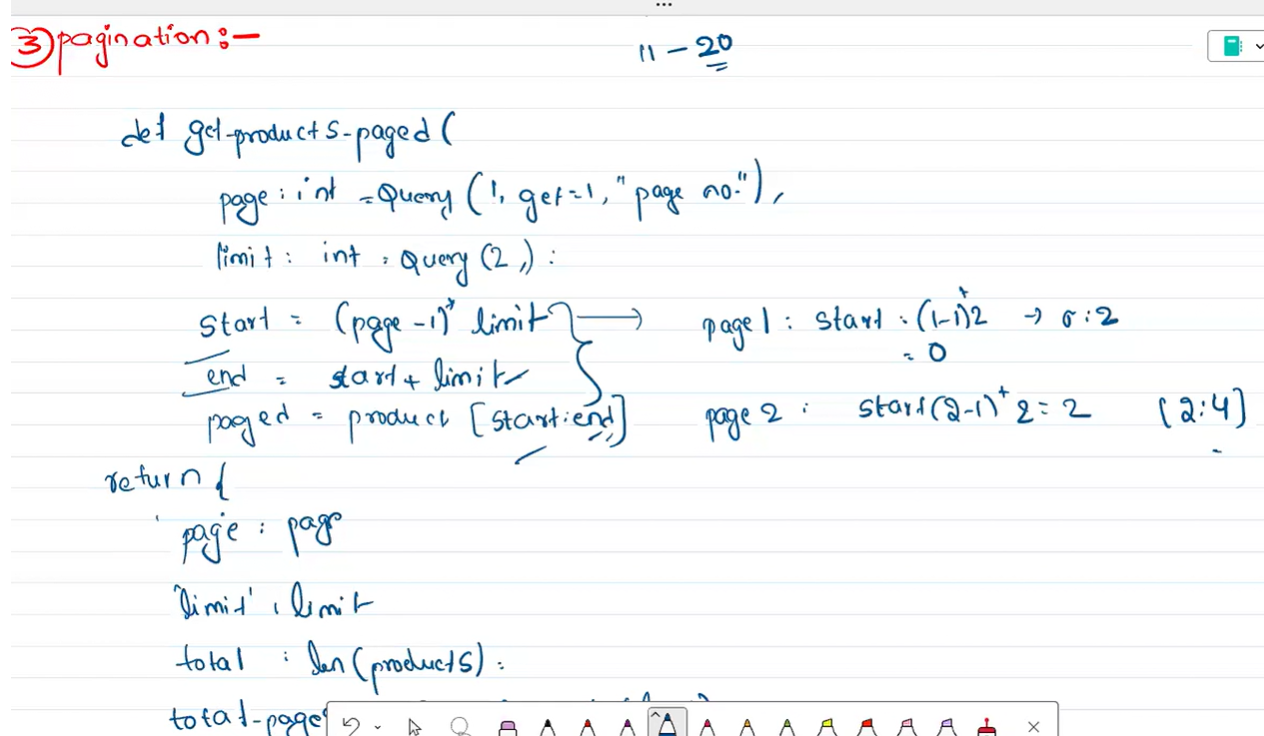 ③ pagination :-
11 - 20
def get-products-paged (
page : int = Query (1, get=1, "page no."),
limit : int = Query (2,) :
start = (page - 1)* limit → page 1 : start : (1-1)*2 → 0:2
= 0
end = start + limit
paged = product [start:end] page 2 : start (2-1)* 2 = 2 [2:4]
return {
page : page
'limit' : limit
total : len (products) :
total-page